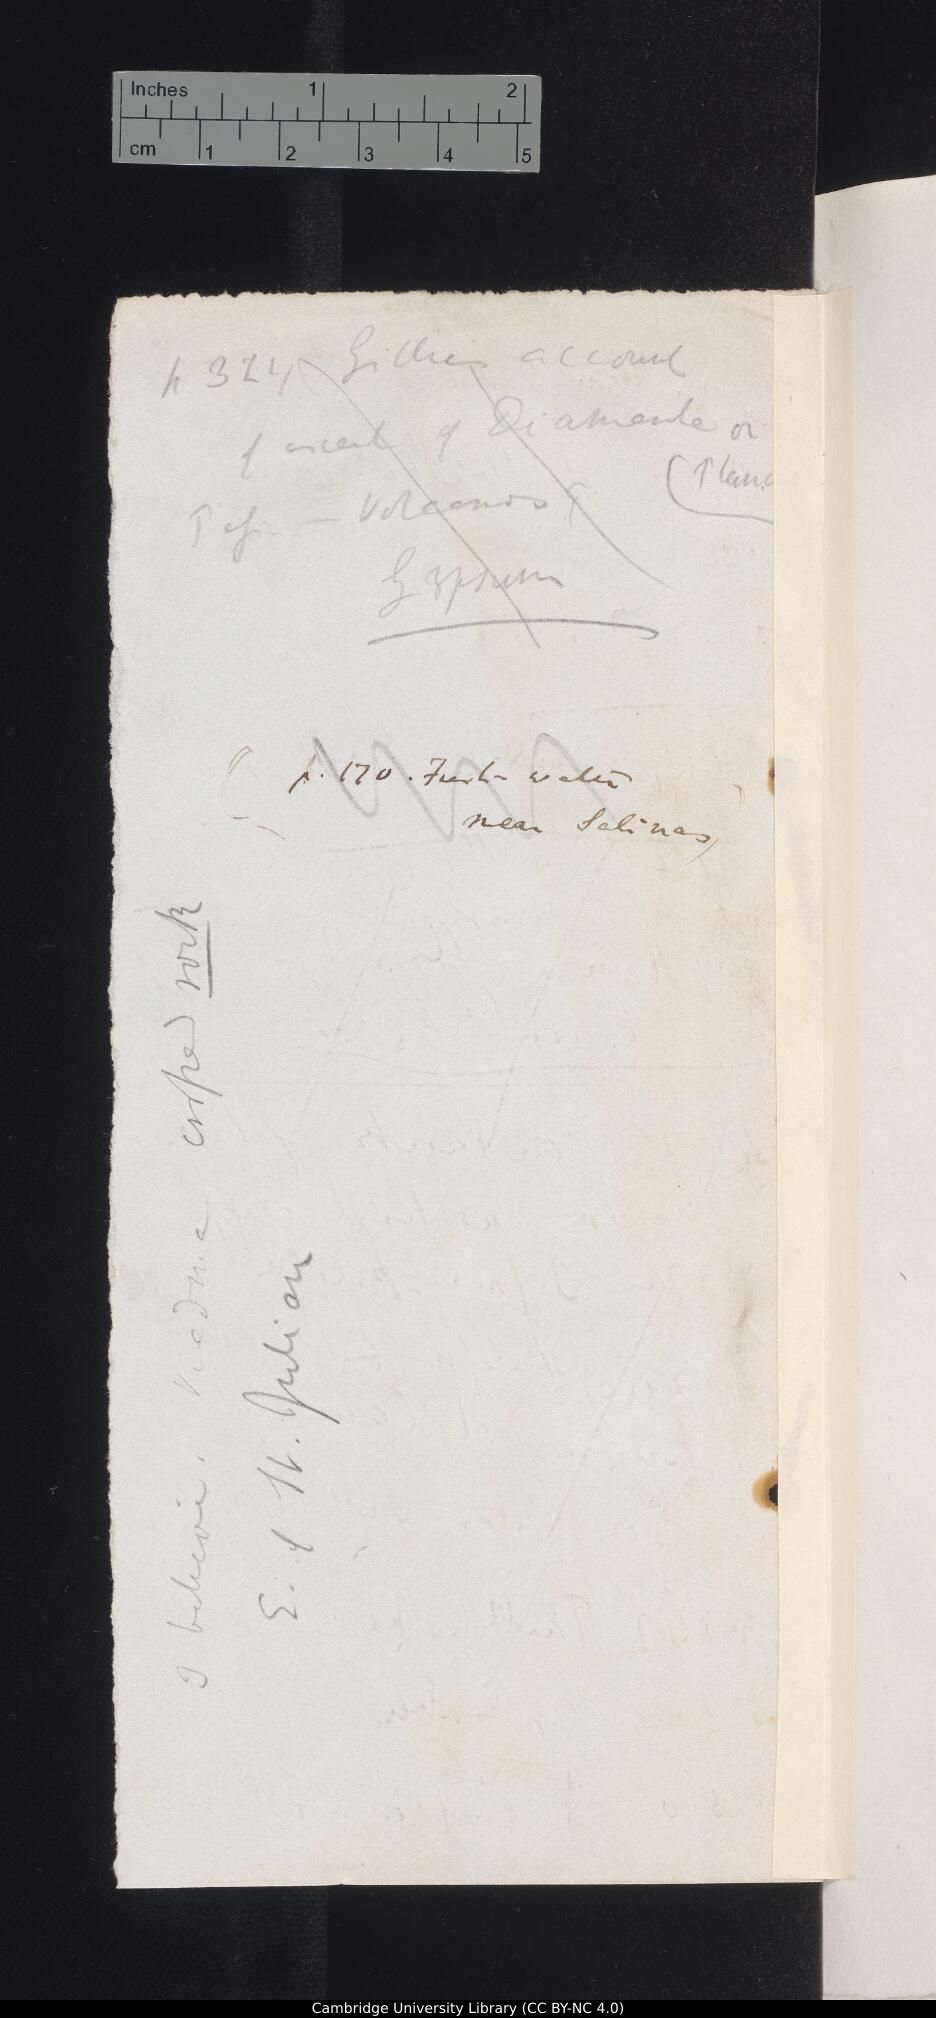 Inches 1 2
cm 1 2 3 4 5
p 324 Gillies account
of ascent of Diamante or
(Plan
Tuff - Volcanos
Gypsum
( p. 170. Fresh water
near Salinas)
I believe. Viedma capped rock
E. of St. Julian
Cambridge University Library (CC BY-NC 4.0)